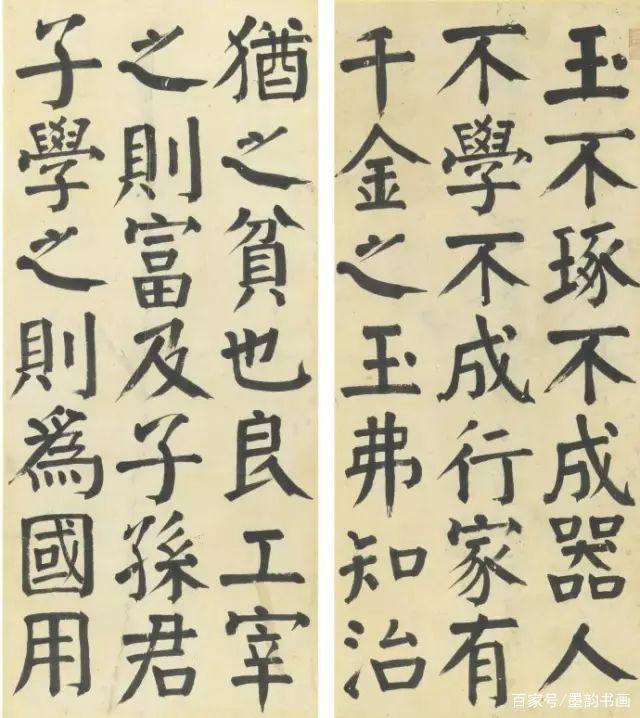 玉不琢不成器人
不學不成行家有
千金之玉弗知治
猶之貧也良工宰
之則富及子孫君
子學之則為國用
百家号/墨韵书画